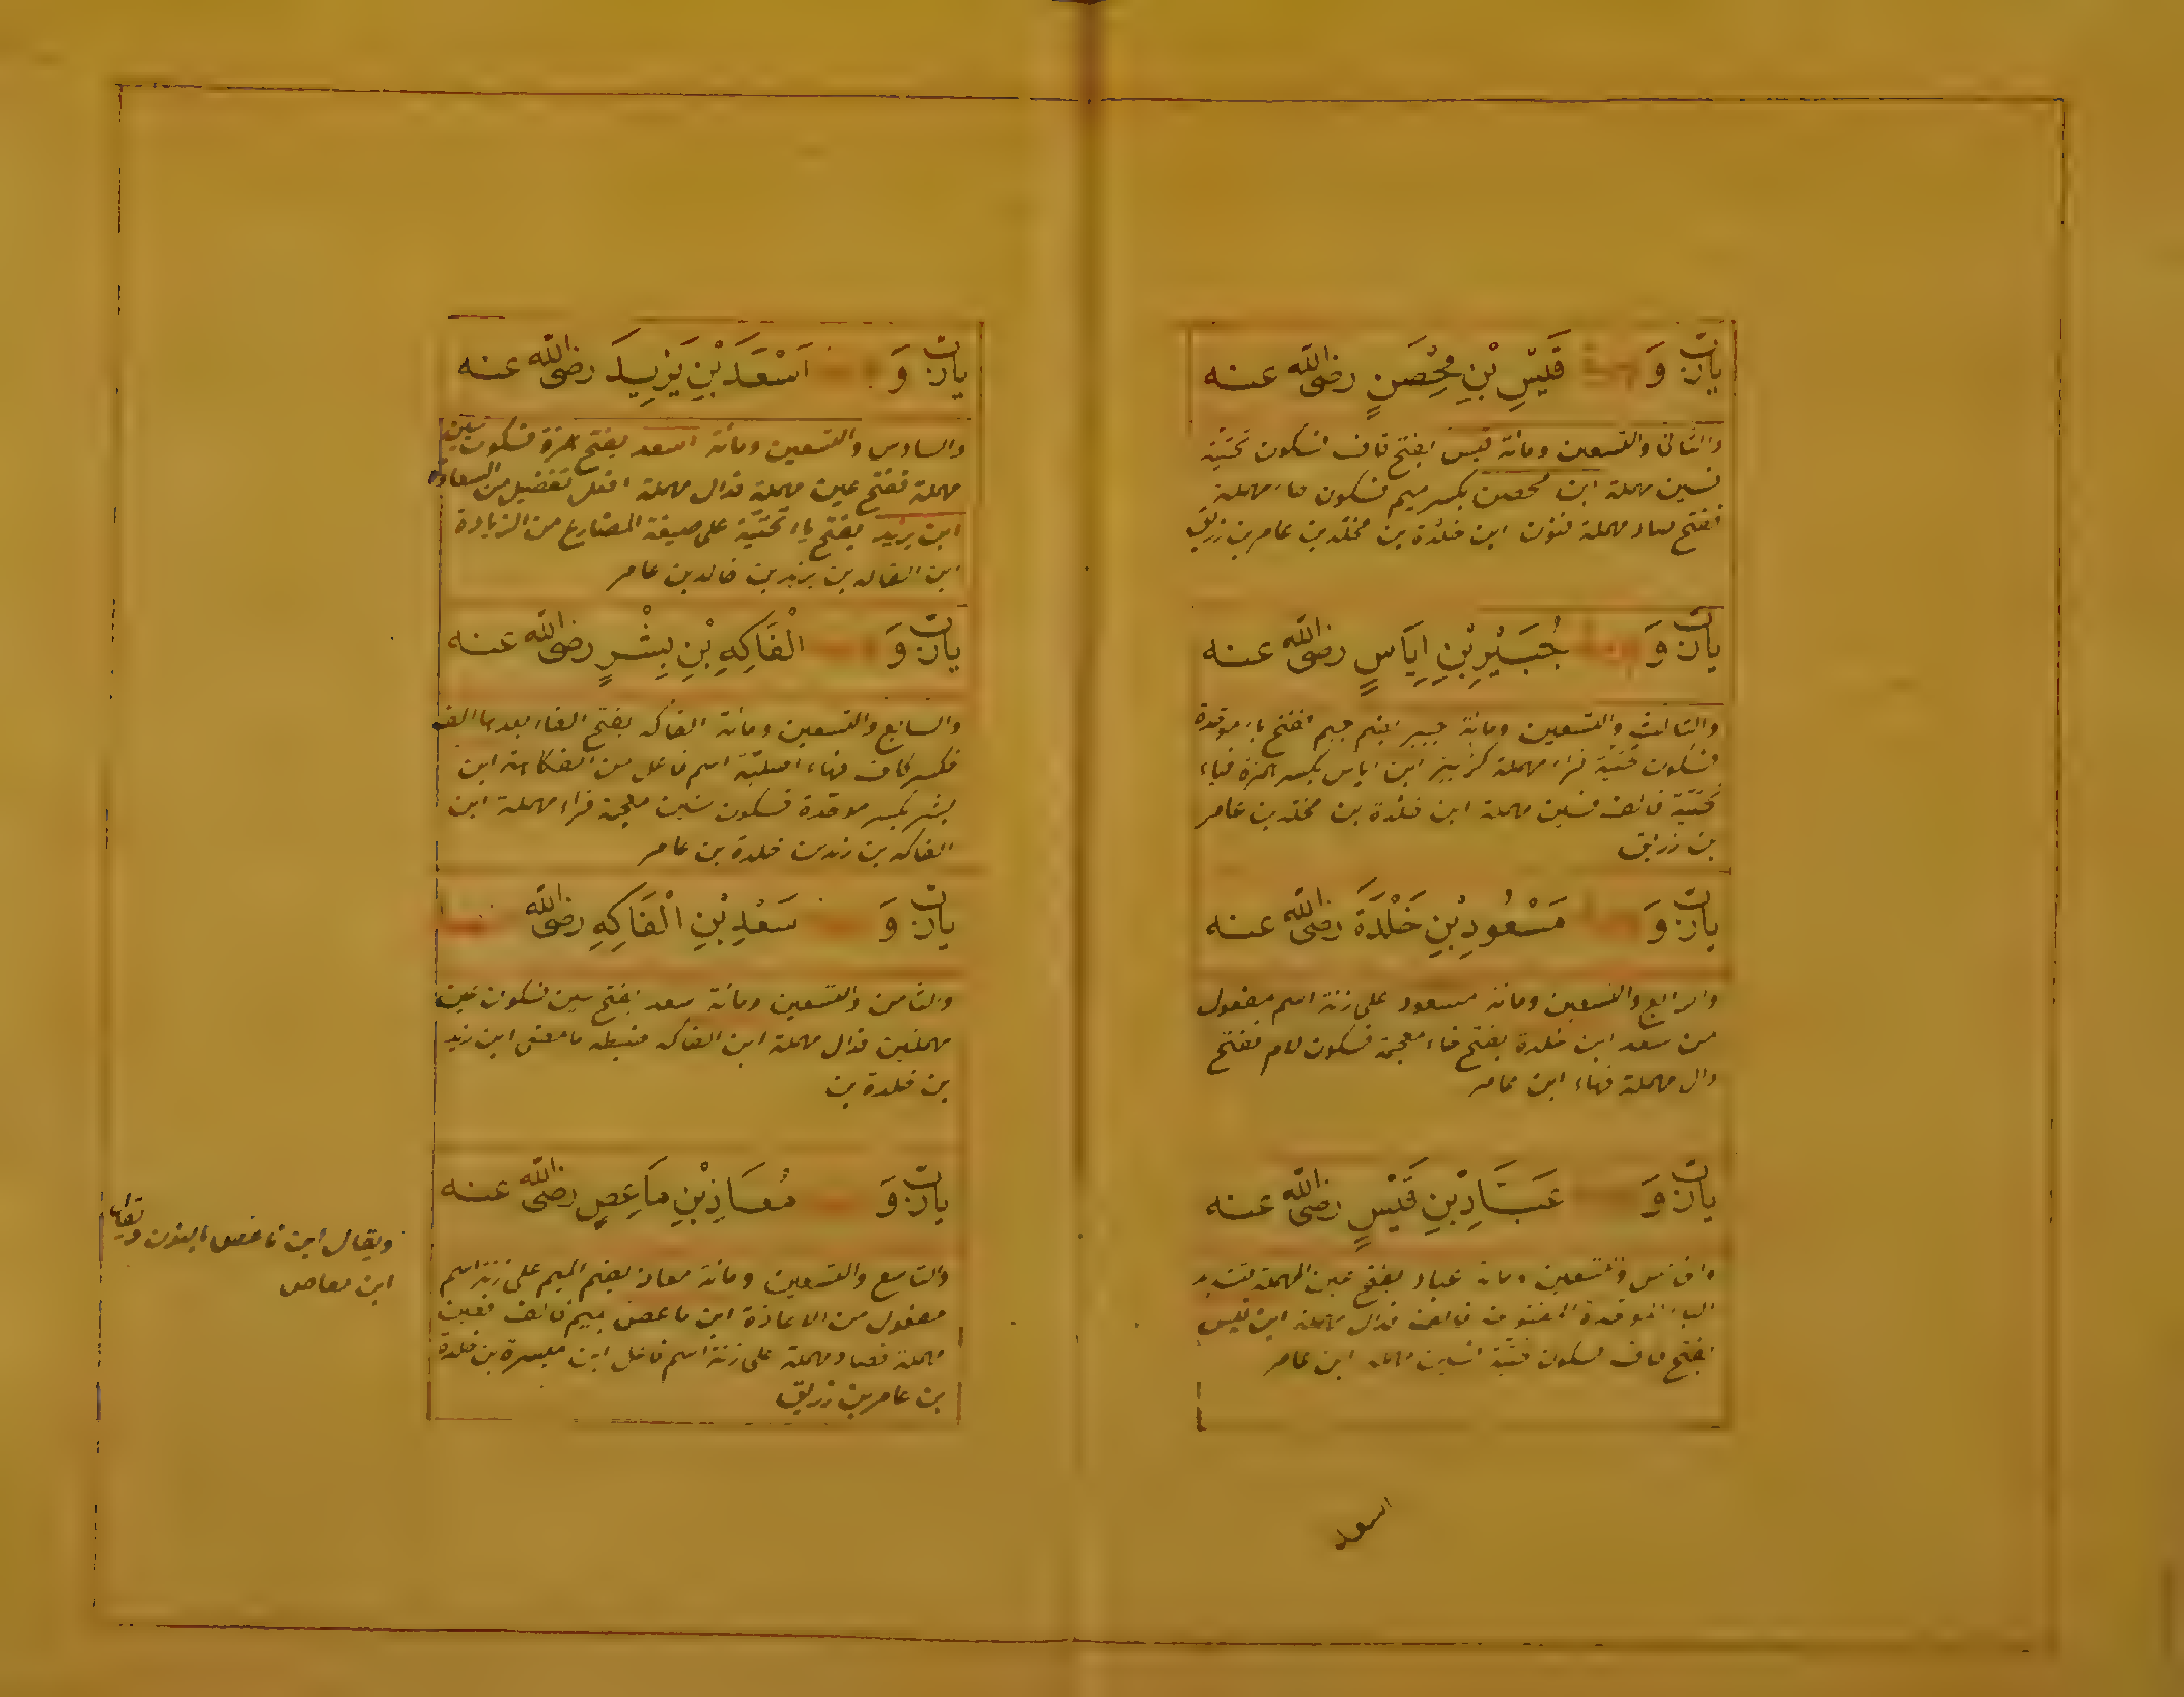 يارب وَ قَيْسِ بْنِ مُحِْصَنٍ رضى الله عنه
والثانى والتسعين ومائة قيس بفتح قاف فسكون تحتيّة
فسين مهملة ابن محصن بكسر ميم فسكون حاء مهملة
ففتح صاد مهملة فنون ابن خلدة بن مخلد بن عامر بن زريق
يارب وَ جُبَيْرِ بْنِ اِيَاسٍ رضى الله عنه
والثالث والتسعين ومائة جبير بضم جيم ففتح باء موحّدة
فسكون تحتيّة فراء مهملة كزبير ابن اياس بكسر همزة فياء
تحتيّة فالف فسين مهملة ابن خلدة بن مخلد بن عامر
بن زريق
يارب وَ مَسْعُودِ بْنِ خَلْدَةَ رضى الله عنه
والرابع والتسعين ومائة مسعود على زنة اسم مفعول
من سعد ابن خلدة بفتح خاء معجمة فسكون لام ففتح
دال مهملة فهاء ابن عامر
يارب وَ عَبَّادِ بْنِ قَيْسٍ رضى الله عنه
والخامس والتسعين ومائة عباد بفتح عين المهملة فتشديد
الباء الموحدة المفتوحة فالف فدال مهملة ابن قيس
بفتح قاف فسكون تحتيّة فسين مهملة ابن عامر
اسعد
يارب وَ اَسْعَدَ بْنِ يَزِيدَ رضى الله عنه
والسادس والتسعين ومائة اسعد بفتح همزة فسكون سين
مهملة ففتح عين مهملة فدال مهملة افعل تفضيل من السعادة
ابن يزيد بفتح ياء تحتيّة على صيغة المضارع من الزيادة
ابن الفاكه بن يزيد بن خالد بن عامر
يارب وَ الْفَاكِهِ بْنِ بِشْرٍ رضى الله عنه
والسابع والتسعين ومائة الفاكه بفتح الفاء بعدها الف
فكسر كاف فهاء اصليّة اسم فاعل من الفكاهة ابن
بشر بكسر موحّدة فسكون شين معجمة فراء مهملة ابن
الفاكه بن زيد بن خلدة بن عامر
يارب وَ سَعْدِ بْنِ الْفَاكِهِ رضى الله
والثامن والتسعين ومائة سعد بفتح سين فسكون عين
مهملتين فدال مهملة ابن الفاكه فضبطه ما مضى ابن زيد
بن خلدة بن
يارب وَ مُعَاذِ بْنِ مَاعِصٍ رضى الله عنه
والتاسع والتسعين ومائة معاذ بضم الميم على زنة اسم
مفعول من الاعاذة ابن ماعص بميم فالف فعين
مهملة فصاد مهملة على زنة اسم فاعل ابن ميسرة بن خلدة
بن عامر بن زريق
ويقال ابن ناعص بالنون ويقال
ابن معاص